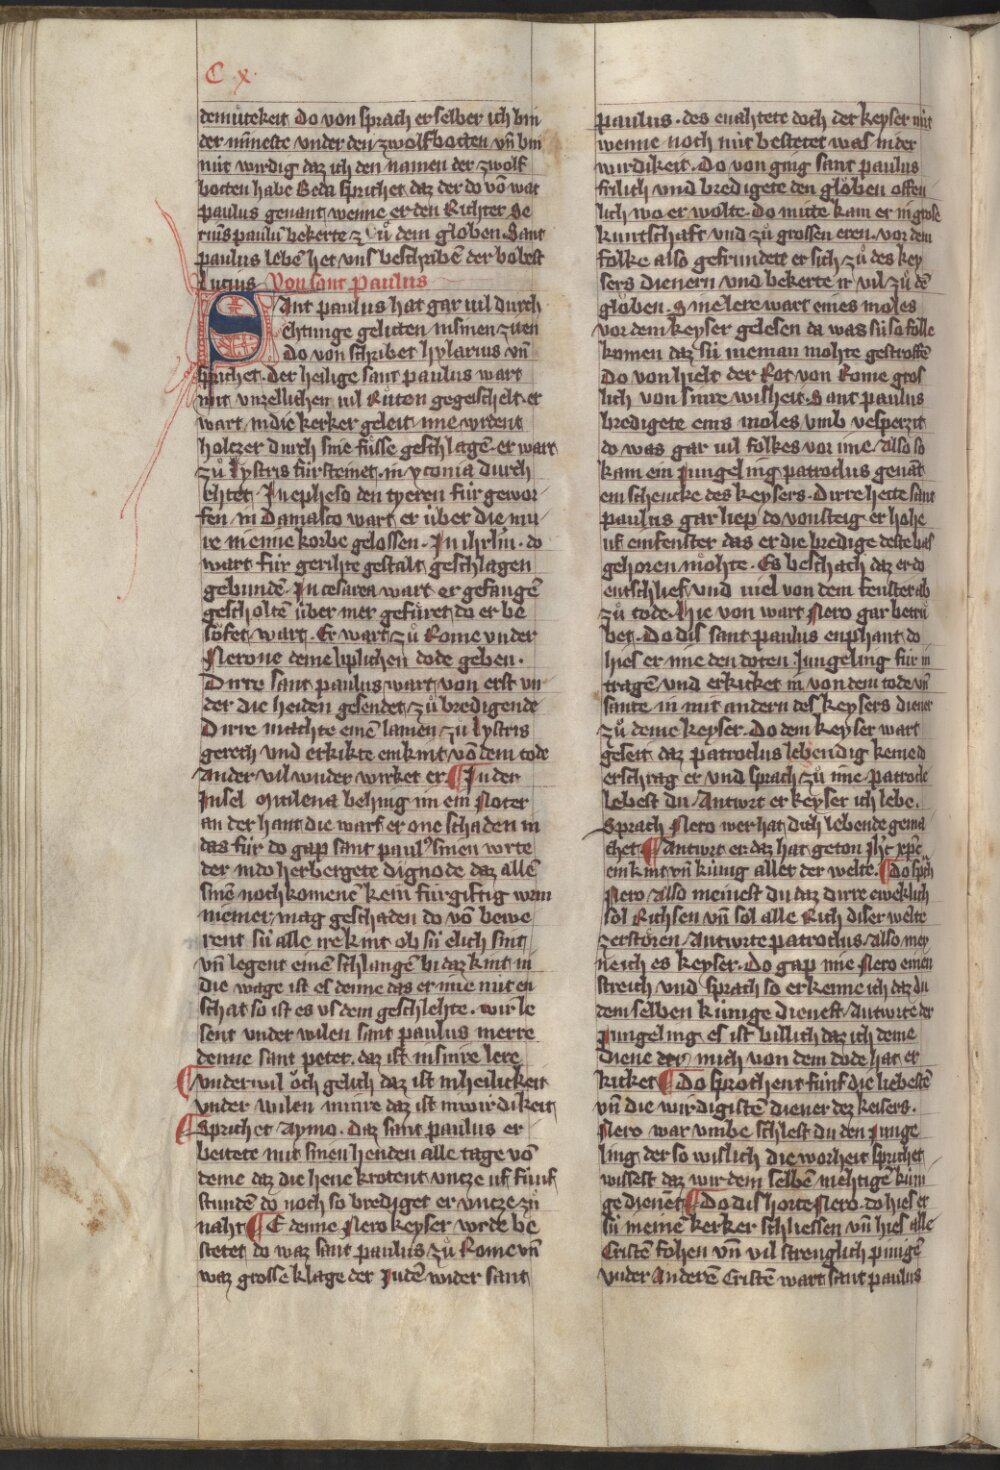 C x.
demuͤtekeit Do von sprach er selber ich bin
der minneste vnder den zwolfbotten vn̄ bin
nut wirdig daz ich den namen der zwolf
botten habe Beda sprichet daz der do vō wart
paulus genant wenne er den Richter Se
paulū bekerte zuͦ dem gloͤben. Sant
paulus lebē het vns beschribē der bobest
Von sant paulus
Sant paulus hat gar uil durch
ehtunge gelitten in sinen ziten
Do von schribet hylarius vn̄
sprichet. Der heilige sant paulus wart
mit vnzellichen uil Ruͦten gegeischelt. er
wart in die kerker geleit ime wrdent
holtzer durch sine fuͤsse geschlagē. er wart
zuͦ lystris fursteinet. in yconia durch
ehtet. In epheso den tyeren fuͤr gewor
fen in Damasco wart er uͤber die mu
re in eime korbe gelossen. In ihrl'm. do
wart fuͤr gerihte gestalt geschlagen
gebundē. In cesarea wart er gefangē
gescholtē uͤber mer gefuͤret do er be
soͤfet wart. Er wart zuͦ Rome vnder
Nerone deme liplichen dode geben.
Dirre sant paulus wart von erst vn
der die heiden gesendet zuͦ bredigende
Dirre machte einē lamen zu lystris
gerech vnd erkikte ein kint vō dem tode
ander vil wnder wirket er ¶ In der
Insel mitilena behing im ein Noter
an der hant die warf er one schaden in
das fuͤr do gap sant paul9 sinen wrte
der in do herbergete dignode daz allē
sinē nochkomenē kein furgiftig wrm
niemer mag geschaden do vō bewe
rent suͤ alle ire kint ob suͤ elich sint
vn̄ legent einē schlangē bi daz kint in
die wage ist es denne das er ime nut en
schat so ist es vs dem geschlehte. wir le
sent vnder wilen sant paulus merre
denne sant peter. daz ist in sinre lere
vnderwil oͤch gelich daz ist in heilickeit
vnder wilen minre daz ist in wirdikeit
¶ Sprichet Aymo. daz sant paulus er
beitete mit sinen henden alle tage vō
deme daz die hene krotent vntze uf fuͤnf
stundē do noch so brediget er vntze zuͦ
naht ¶ E denne Nero keyser wrde be
stetet do waz sant paulus zuͦ Rome vn̄
waz grosse klage der Judē wider sant
paulus. des enahtete doch der keyser nut
wenne noch nut bestetet was in der
wirdikeit. Do von ging sant paulus
frilich vnd bredigete den gloͤben offen
lich wo er wolte. do mitte kam er in grose
kuntschaft vnd zuͦ grossen eren. vor dem
folke also gefrundete er sich zuͦ des key
sers dienern vnd bekerte ir vil zuͦ dē
gloͤben. Sine lere wart eines moles
vor dem keyser gelesen da was suͤ so folle
komen daz suͤ nieman mohte gestroffē
Do von hielt der Rot von Rome gros
lich von sinre wisheit. Sant paulus
bredigete eins moles vmb vesperzit
do was gar uil folkes vor ime. also so
kam ein Jungeling patroclus genāt
ein schencke des keysers. Dirre hette sant
paulus gar liep do von steig er hohe
uf ein fenster das er die bredige deste bas
gehoren moͤhte. Es beschach daz er do
entschlief vnd uiel von dem fenster ab
zuͦ tode. hie von wart Nero gar betruͤ
bet. Do dis sant paulus enphant do
hies er ime den doten Jungeling fuͤr in
tragē vnd erkicket in von dem tode vn̄
sante in mit andern des keysers diener
zuͦ deme keyser. Do dem keyser wart
geseit daz patroclus lebendig keme do
erschrag er vnd sprach zuͦ ime patrocle
lebest du. Antwrt er keyser ich lebe.
Sprach Nero wer hat dich lebende gema
chet ¶ Antwrt er. daz hat geton ih'c xp'c
ein kint vn̄ kuͤnig aller der welte. ¶ Do sprach
Nero also meinest du daz dirre eweklich
sol Richsen vn̄ sol alle Rich diser welte
zerstoͤren. Antwrte patroclus. also mey
ne ich es keyser. Do gap ime Nero einen
streich vnd sprach so erkenne ich daz du
dem selben kuͤnige dienest. Antwrte der
Jungeling es ist billich daz ich deme
diene der mich von dem dode hat er
kicket ¶ Do sprochent fuͤnf die liebestē
vn̄ die wirdigistē diener dez keisers.
Nero war vmbe schlest du den Junge
ling der so wislich die worheit sprichet
wissest daz wir dem selbē mehtigē kuͤni
ge dienēt ¶ Do dis horte Nero. do hies er
suͤ in eine kerker schliessen vn̄ hies alle
Cristē fohen vn̄ vil strenglich pinigē
vnder anderē Cristē wart sant paulus